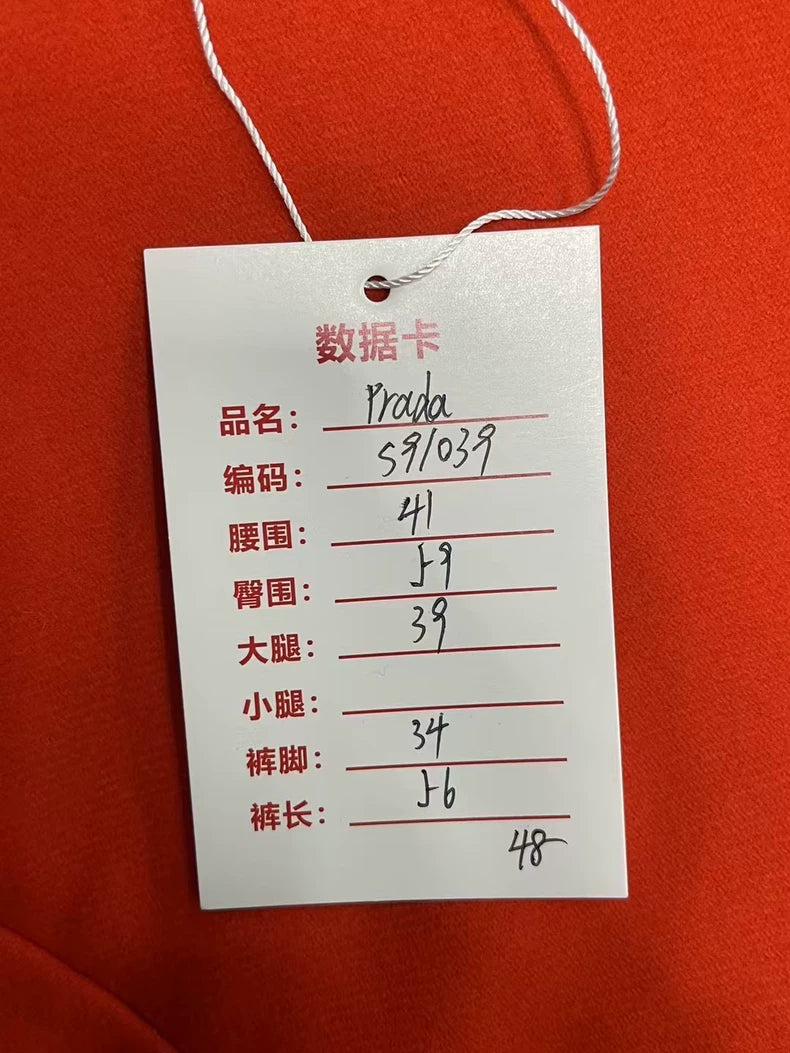 数据卡
品名: Prada
编码: S91039
腰围: 41
臀围: 59
大腿: 39
小腿:
裤脚: 34
裤长: 56
48